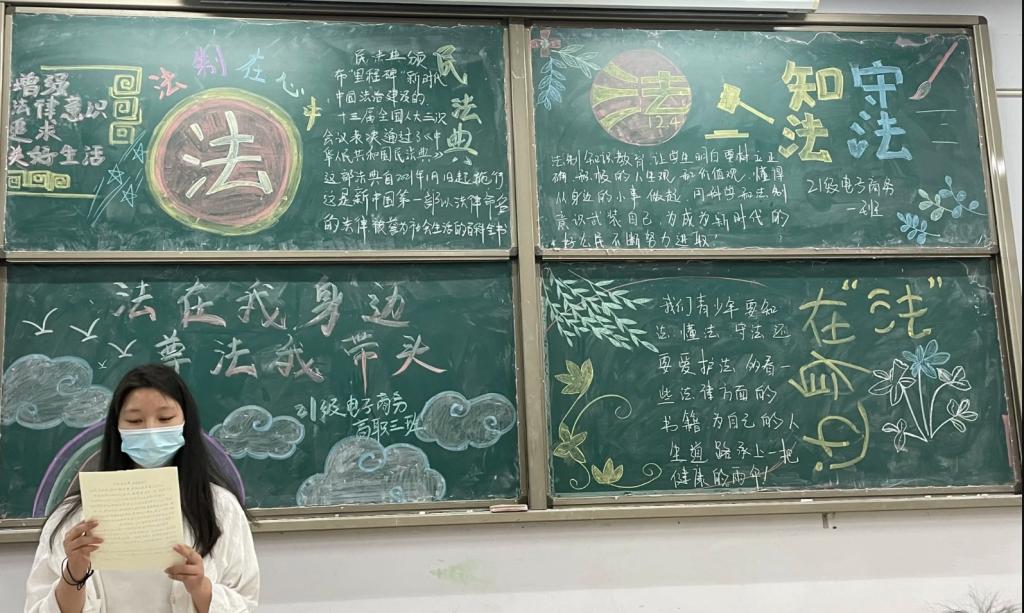 法制在心中
增强
法律意识
追求
美好生活
法
民法典
民法典颁
布"里程碑"新时代
中国法治建设的
十三届全国人大三次
会议表决通过了《中
华人民共和国民法典》
这部法典自2021年1月1日起施行
这是新中国第一部以法律命名
的法律被誉为社会生活的百科全书
法
12.4
知法
守法
法制知识教育让学生明白要树立正
确积极的人生观和价值观,懂得
从身边的小事做起用科学和法制
意识武装自己,为成为新时代的
好公民不断努力进取
21级电子商务
一班
法在我身边
尊法我带头
21级电子商务
高职三班
我们青少年要知
法懂法守法还
要爱护法的看一
些法律方面的
书籍为自己的人
生道路承上一把
健康的雨伞!
"法"
在
身边